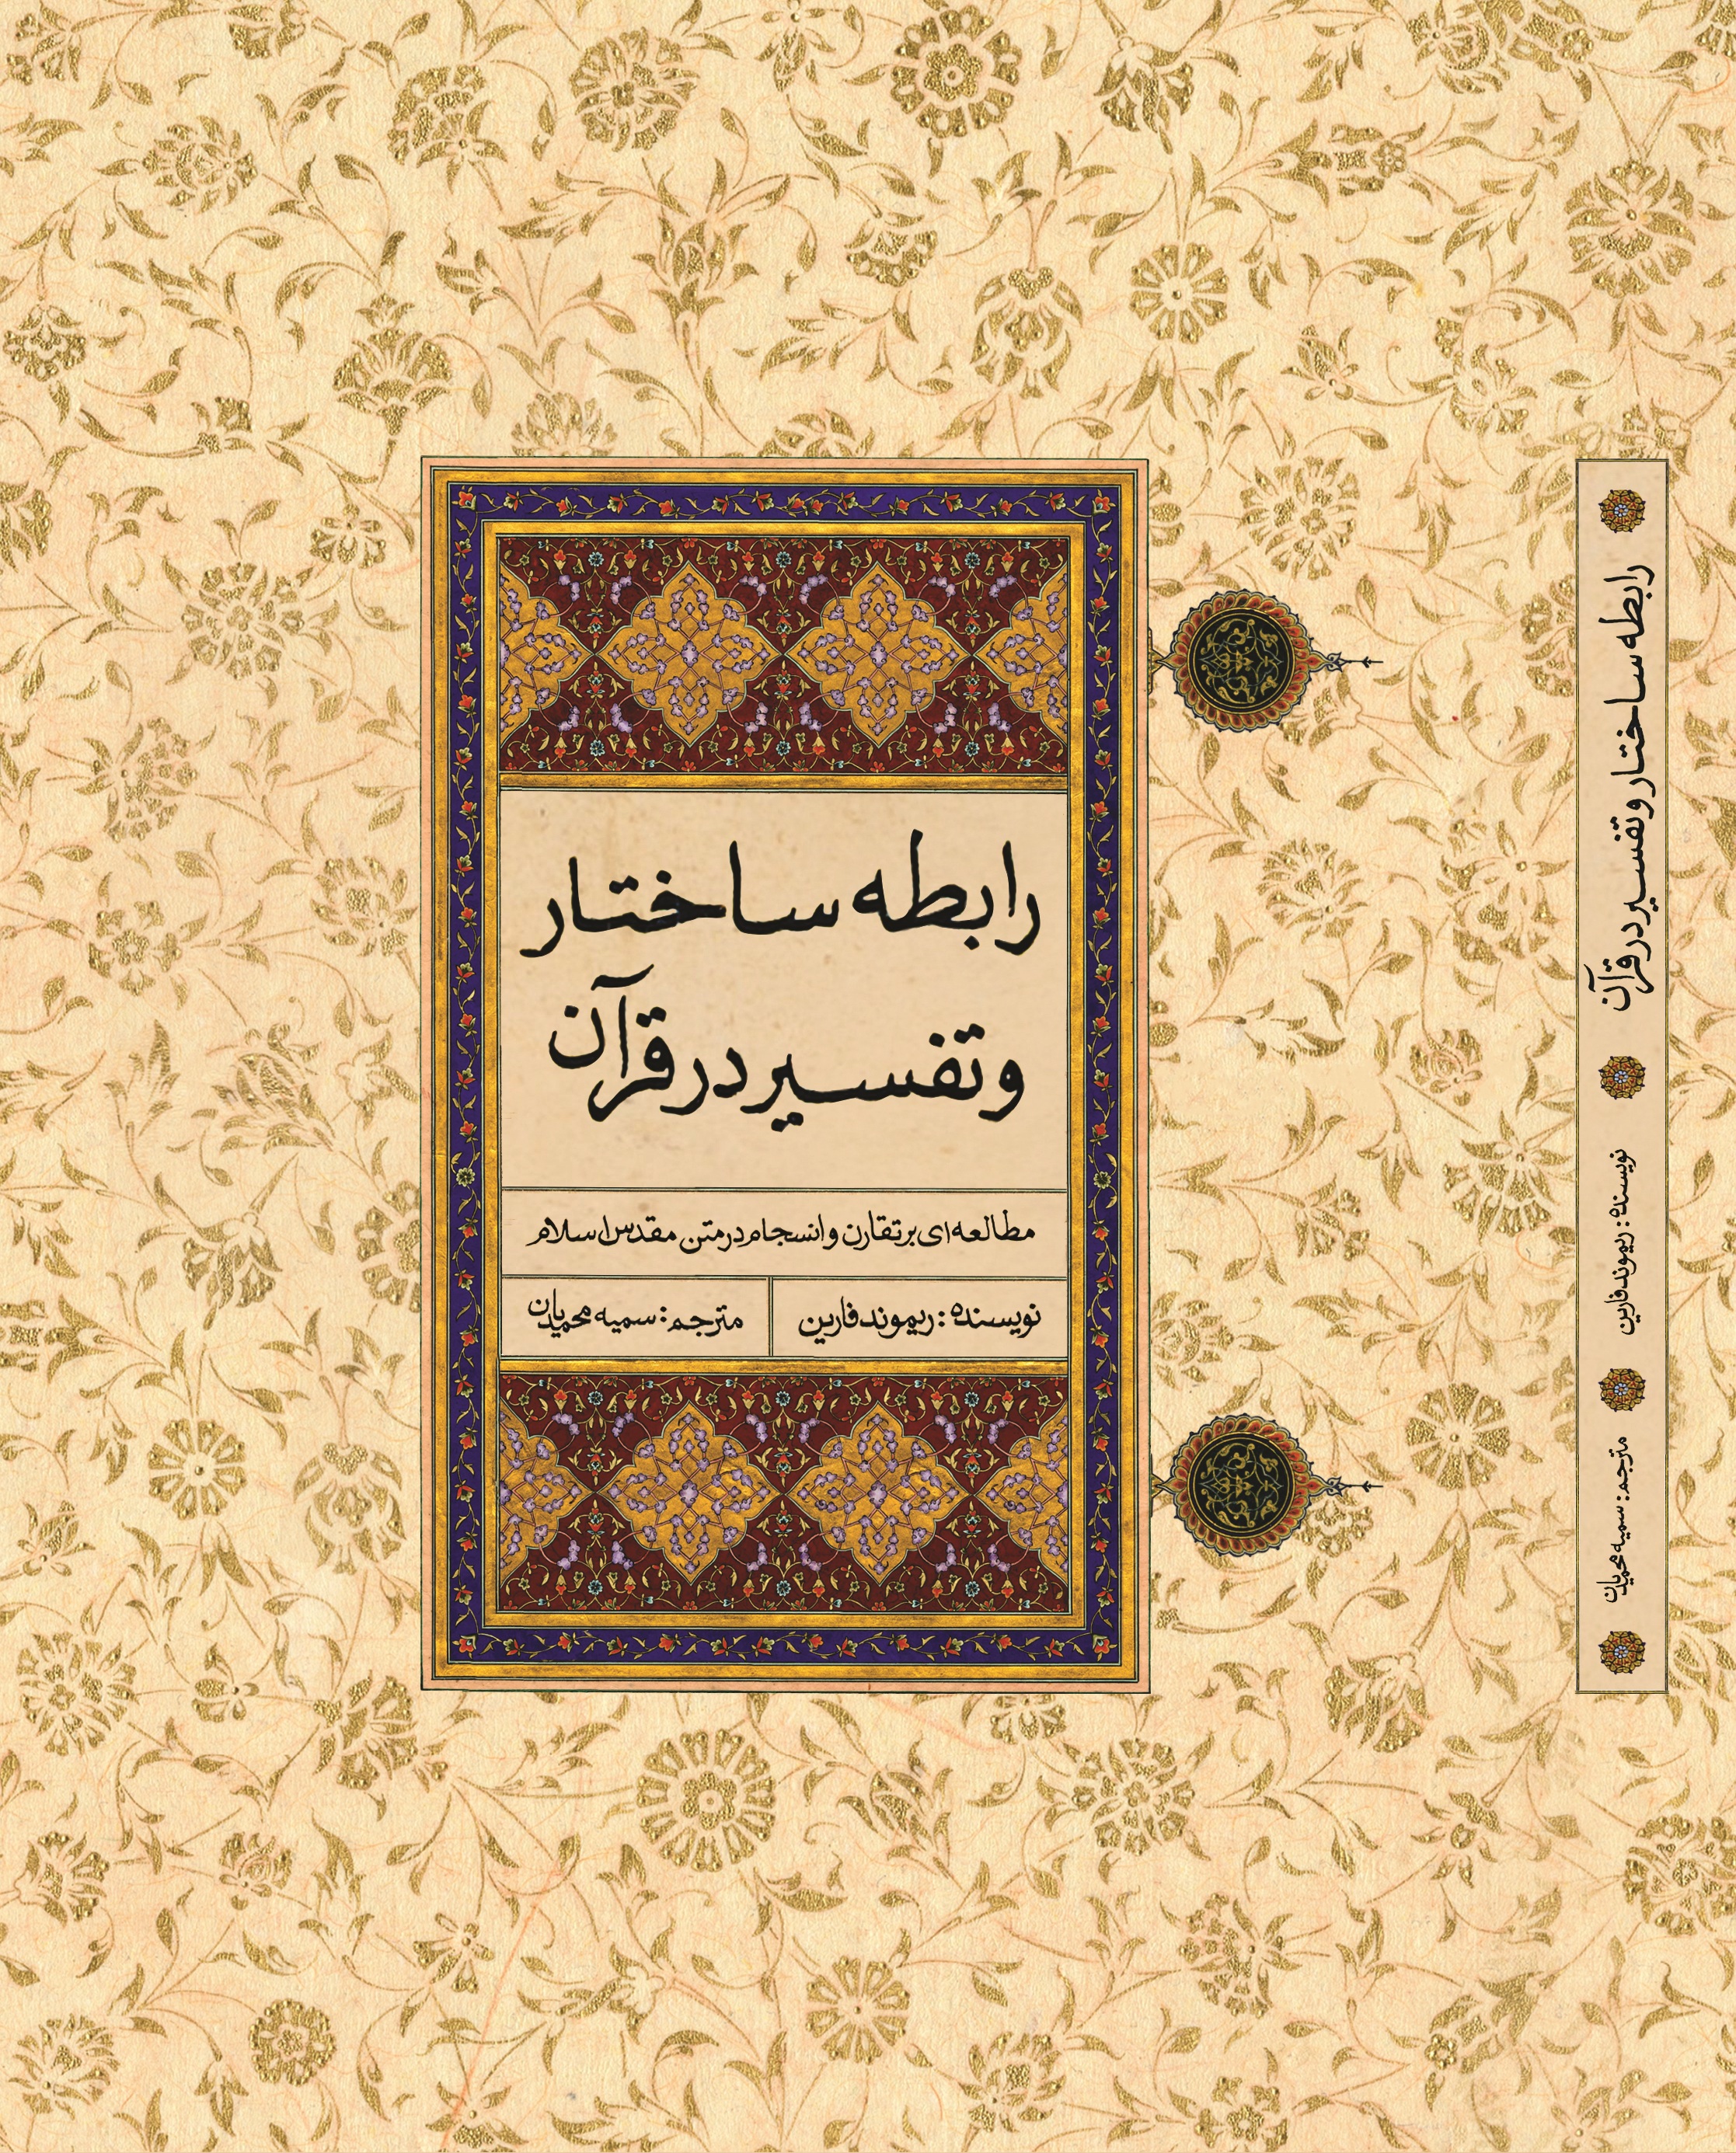 رابطه ساختار
و تفسیر در قرآن
مطالعه‌ای بر تقارن و انسجام در متن مقدس اسلام
نویسنده: ریموند فارین
مترجم: سمیه محمدیان
رابطه ساختار و تفسیر در قرآن
نویسنده: ریموند فارین
مترجم: سمیه محمدیان